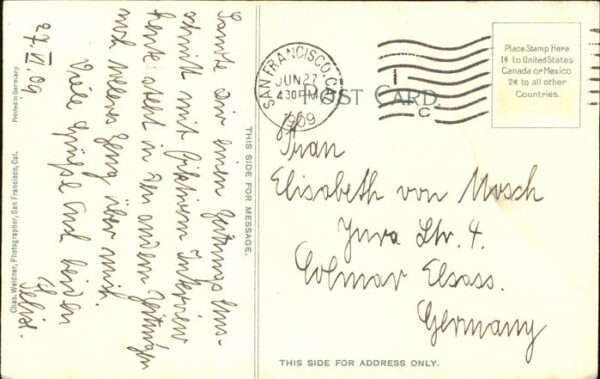 Sandte Dir einen Zeitungs Aus-
schnitt mit Interview
heute steht in den andern Zeitungen
noch Zeug über mich.
Viele Grüße Euch beiden
27. VI 09
THIS SIDE FOR MESSAGE.
Printed in Germany
Chas. Weidner, Photographer, San Francisco, Cal.
SAN FRANCISCO, CAL
JUN 27
4 30 PM
1909
1
C
POST CARD.
Place Stamp Here
1¢ to United States
Canada or Mexico
2¢ to all other
Countries.
Frau
Elisabeth von Mosch
Jura Str. 4.
Colmar Elsass.
Germany
THIS SIDE FOR ADDRESS ONLY.